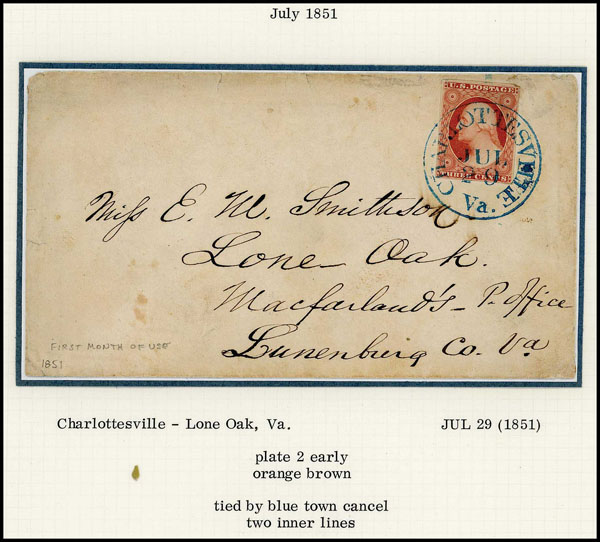 July 1851
U.S. POSTAGE
THREE CENTS
CHARLOTTESVILLE
JUL
29
Va.
Miss E. W. Smithson
Lone Oak.
Macfarland's - P. Office
Lunenburg Co. Va
FIRST MONTH OF USE
1851
Charlottesville - Lone Oak, Va.
JUL 29 (1851)
plate 2 early
orange brown
tied by blue town cancel
two inner lines